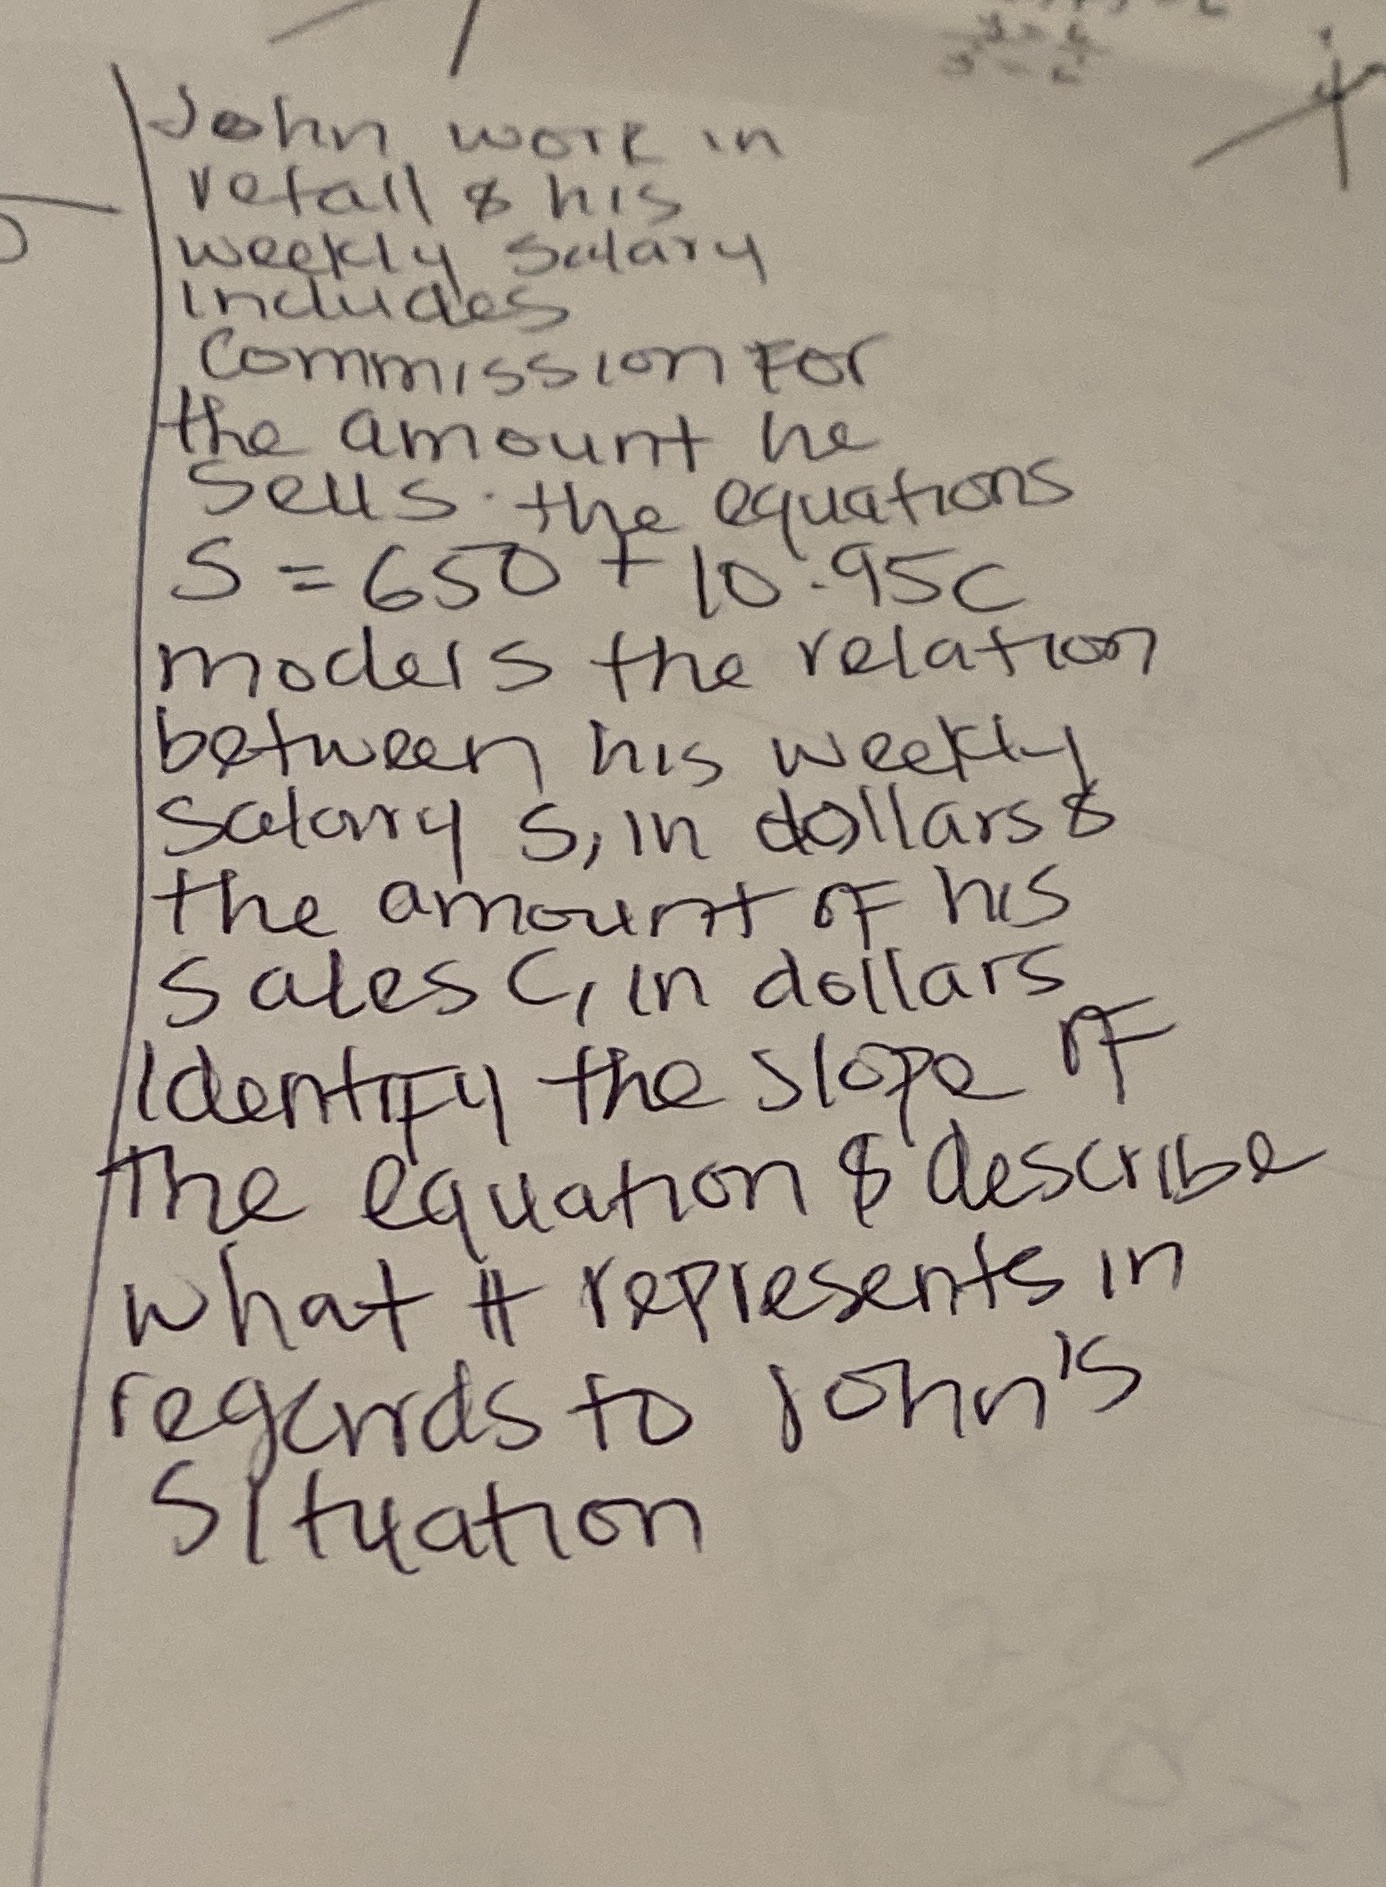 John work in
retail & his
weekly salary
includes
Commission For
the amount he
Sells. the equations
S = 650 + 10.95C
models the relation
between his weekly
salary S, in dollars &
the amount of his
sales C, in dollars
Identify the slope of
the equation & describe
what it represents in
regards to John's
Situation